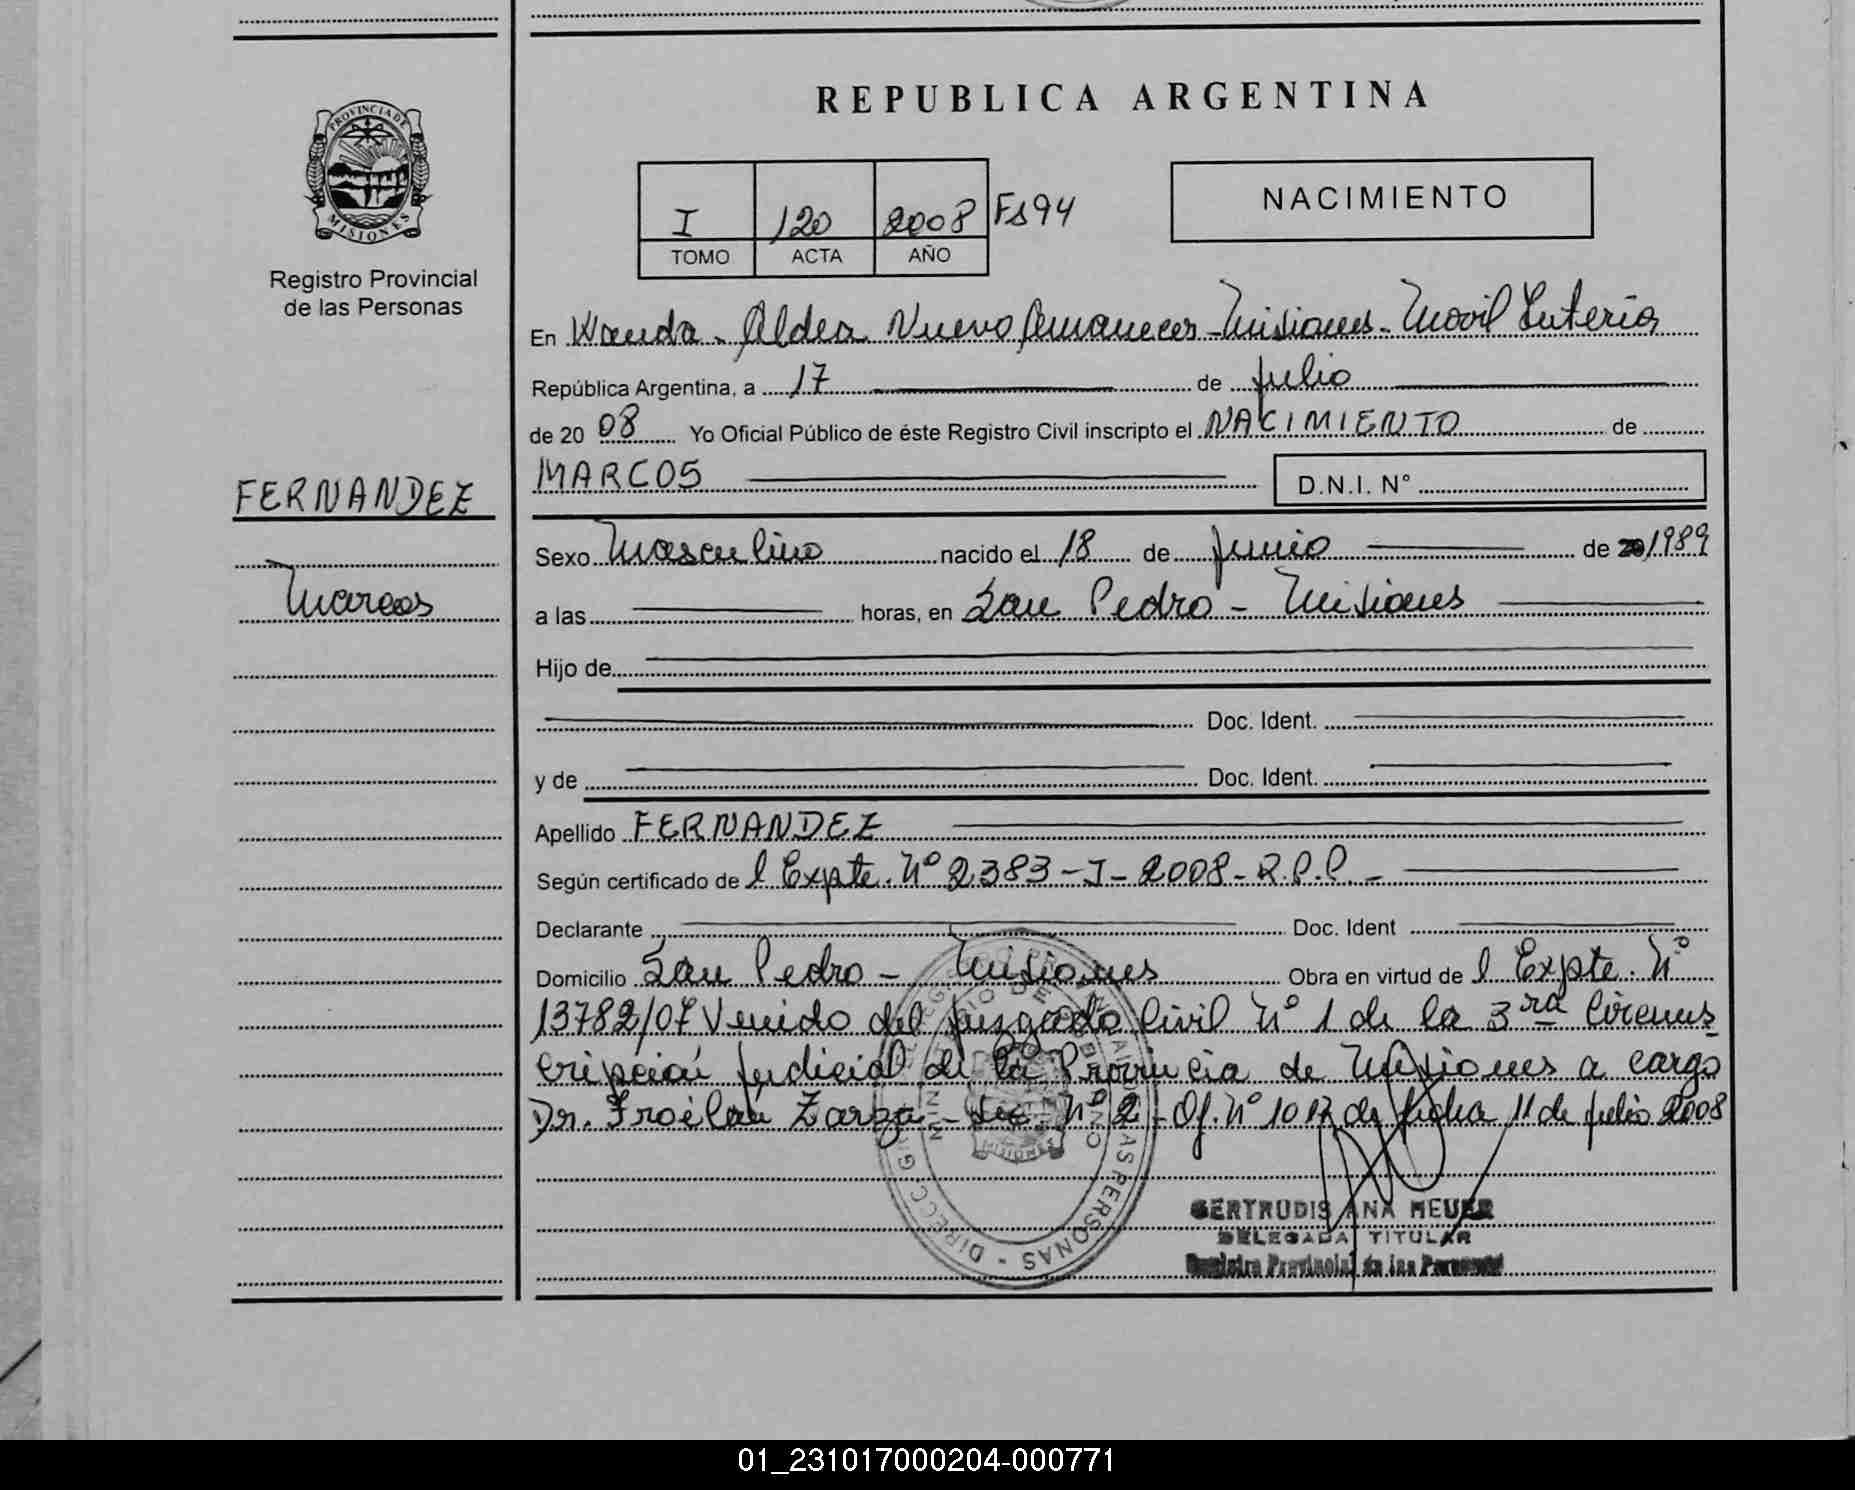 REPUBLICA ARGENTINA
PROVINCIA DE
MISIONES
Registro Provincial
de las Personas
I 120 2008 Fs 94
TOMO ACTA AÑO
NACIMIENTO
En Wanda - Aldea Nuevo Amanecer - Misiones - Movil
República Argentina, a 17 de julio
de 20 08 Yo Oficial Público de éste Registro Civil inscripto el NACIMIENTO de
MARCOS D.N.I. N°
FERNANDEZ
Marcos
Sexo Masculino nacido el 18 de junio de 1989
a las horas, en San Pedro - Misiones
Hijo de
Doc. Ident.
y de Doc. Ident.
Apellido FERNANDEZ
Según certificado de l Expte. N° 2383-I-2008-R.P.P. -
Declarante Doc. Ident
Domicilio San Pedro - Misiones Obra en virtud de l Expte. N°
13782/07 Venido del juzgado Civil N° 1 de la 3ra Circuns
cripción judicial de la Provincia de Misiones a cargo
Dr. Froilán Zarza - Sec N° 2 - Of. N° 1012 de fecha 11 de julio 2008
GERTRUDIS ANA MEUER
DELEGADA TITULAR
Registro Provincial de las Personas
01_231017000204-000771